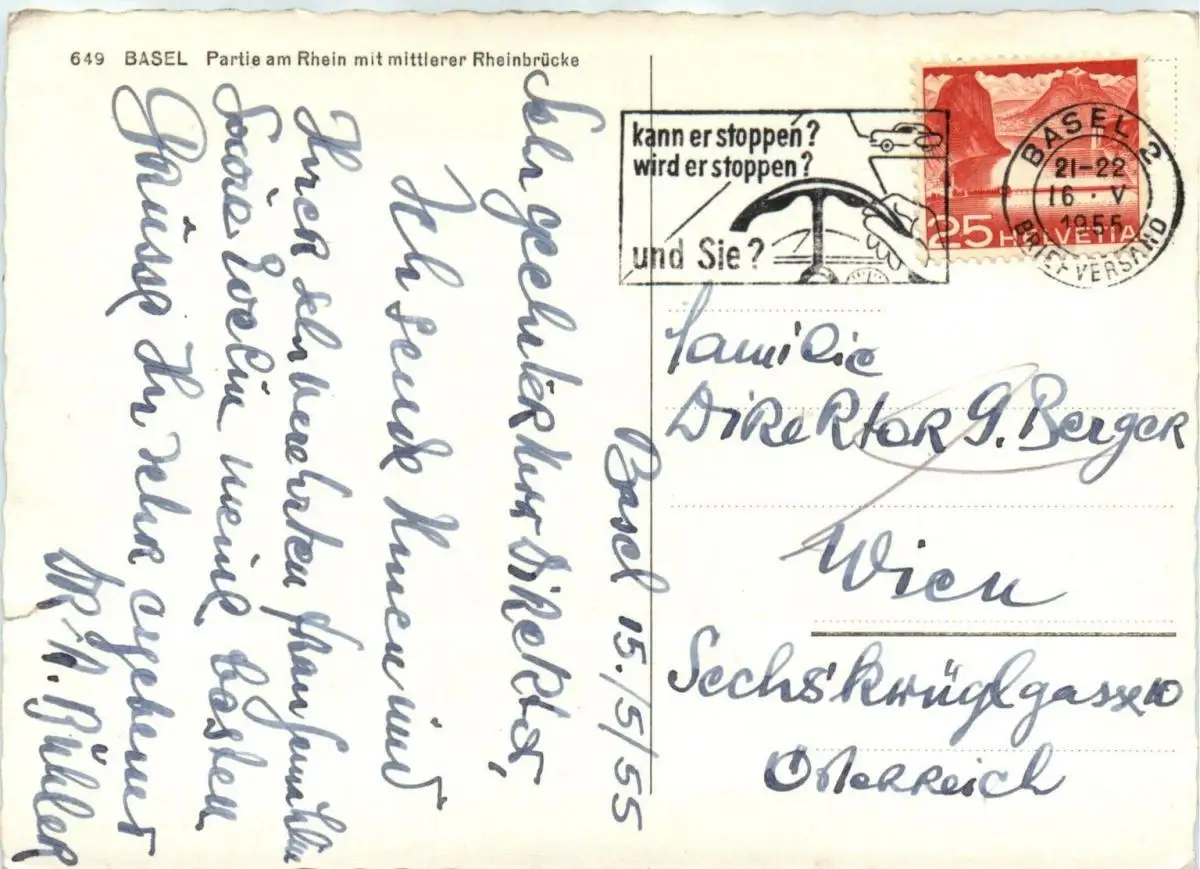 649 BASEL Partie am Rhein mit mittlerer Rheinbrücke
Basel 15./5/55
Sehr geehrter Herr Direktor,
Ich sende Ihnen und
Ihrer sehr verehrten Frau Gemahlin
sowie Evelin meine besten
Grüsse Ihr sehr ergebener
DR. A. Bühler
kann er stoppen?
wird er stoppen?
und Sie?
BASEL 2
21-22
16·V
1955
BRIEFVERSAND
25 HELVETIA
Familie
Direktor G. Berger
Wien
Sechskrüglgasse 10
Österreich